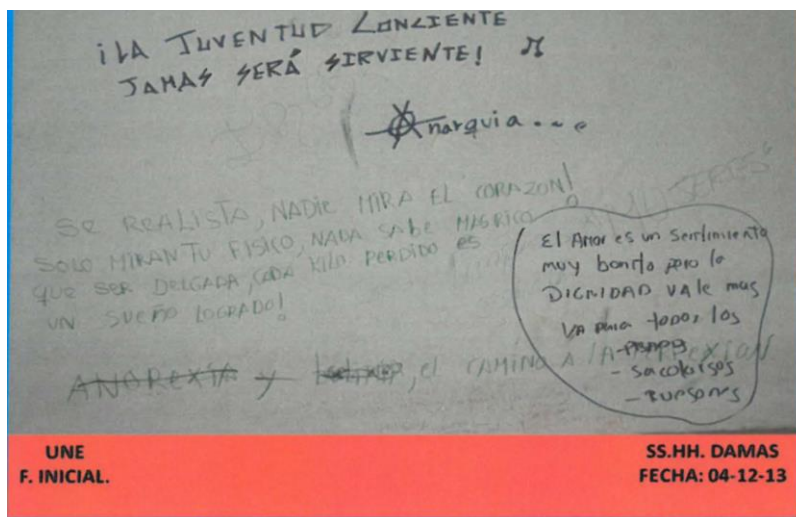 ¡LA JUVENTUD CONZIENTE
JAMAS SERÁ SIRVIENTE!
Anarquia...
SE REALISTA, NADIE MIRA EL CORAZON!
SOLO MIRAN TU FISICO, NADA SABE MAS RICO
QUE SER DELGADA, CADA KILO PERDIDO ES
UN SUEÑO LOGRADO!
ANOREXIA y, el CAMINO A LA
El Amor es un Sentimiento
muy bonito pero la
DIGNIDAD VALE mas
VA para todos los
- sacolargos
UNE
F. INICIAL.
SS.HH. DAMAS
FECHA: 04-12-13